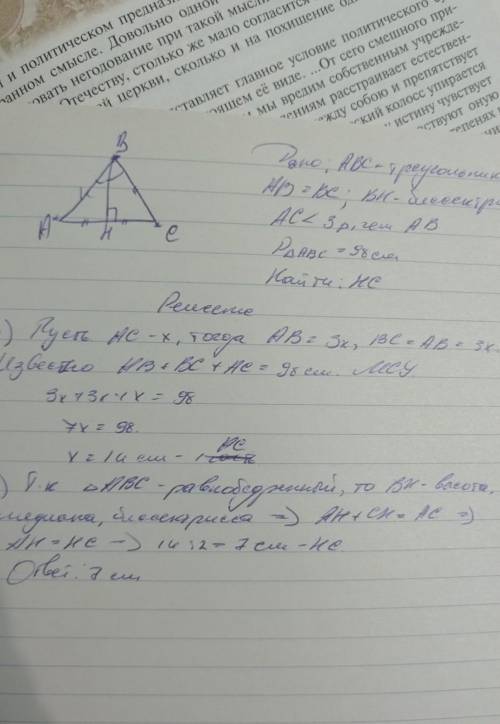 и политическом предназ
анном смысле. Довольно одной
овать негодование при такой мысли
Отечеству, столько же мало согласится
церкви, сколько и на похищение
ставляет главное условие политического
ем её виде. ...От сего смешного при-
мы вредим собственным учрежде-
ениям расстраивает естествен-
жду собою и препятствует
ский колосс упирается
истину чувствует
ствуют оную
B
A H C
Дано: ABC - треугольник
AB = BC; BH - биссектри
AC < 3р, чем AB
P△ABC = 98 см
Найти: HC
Решение
) Пусть AC - x, тогда AB = 3x, BC = AB = 3x.
Известно AB + BC + AC = 98 см.
3x + 3x + x = 98
7x = 98.
x = 14 см - AC
) Т.к △ABC - равнобедренный, то BH - высота,
медиана, биссектрисса => AH + CH = AC =>
AH = HC -> 14 : 2 = 7 см - HC
Ответ: 7 см